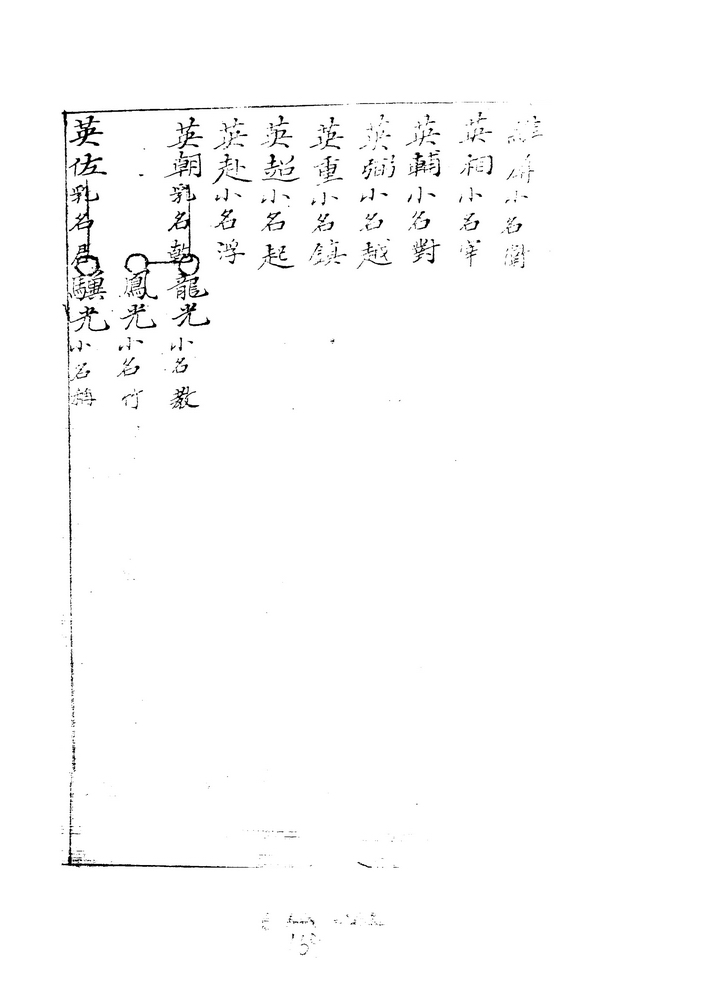 小名
英相小名宰
英輔小名對
英弼小名越
英重小名鎮
英超小名起
英赴小名浮
英朝乳名乾
龍光小名教
鳳光小名竹
英佐乳名君
驥光小名稱